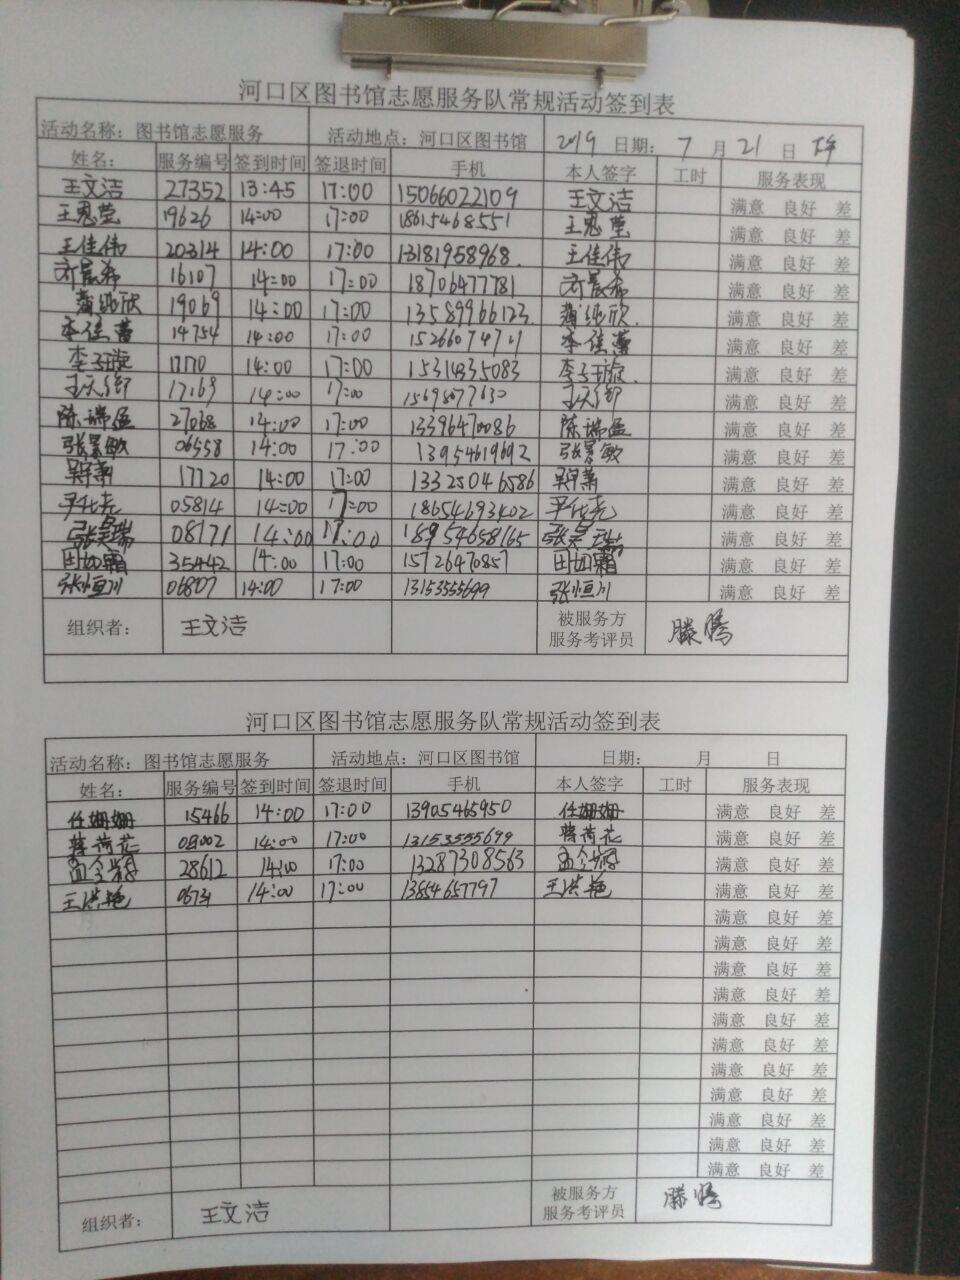 河口区图书馆志愿服务队常规活动签到表
活动名称：图书馆志愿服务 活动地点：河口区图书馆 2019 日期： 7 月 21 日 下午
姓名： 服务编号 签到时间 签退时间 手机 本人签字 工时 服务表现
王文洁 27352 13:45 17:00 15066022109 王文洁 满意 良好 差
王恩莹 19626 14:00 17:00 18615468551 王恩莹 满意 良好 差
王佳伟 20314 14:00 17:00 13181958968 王佳伟 满意 良好 差
齐晨希 16107 14:00 17:00 18706477781 齐晨希 满意 良好 差
蒲继欣 19069 14:00 17:00 13589966123 蒲继欣 满意 良好 差
李佳蕾 14754 14:00 17:00 李佳蕾 满意 良好 差
李子璇 14:00 17:00 15314335083 李子璇 满意 良好 差
17169 14:00 17:00 15698077630 满意 良好 差
陈瑞强 27068 14:00 17:00 13396470086 陈瑞强 满意 良好 差
张景敏 06558 14:00 17:00 13954619692 张景敏 满意 良好 差
17720 14:00 17:00 13325046586 满意 良好 差
05814 14:00 17:00 18654693402 满意 良好 差
张昊瑞 08171 14:00 17:00 18954658165 张昊瑞 满意 良好 差
田如霜 35442 14:00 17:00 15726470857 田如霜 满意 良好 差
张恒川 06807 14:00 17:00 13153555699 张恒川 满意 良好 差
组织者： 王文洁 被服务方 服务考评员 滕腾
河口区图书馆志愿服务队常规活动签到表
活动名称：图书馆志愿服务 活动地点：河口区图书馆 日期： 月 日
姓名： 服务编号 签到时间 签退时间 手机 本人签字 工时 服务表现
任姗姗 15466 14:00 17:00 13905465950 任姗姗 满意 良好 差
蒋荷花 14:00 17:00 13153555699 蒋荷花 满意 良好 差
28612 14:00 17:00 13287308563 满意 良好 差
王洪艳 14:00 17:00 13854657797 王洪艳 满意 良好 差
满意 良好 差
满意 良好 差
满意 良好 差
满意 良好 差
满意 良好 差
满意 良好 差
满意 良好 差
满意 良好 差
满意 良好 差
满意 良好 差
满意 良好 差
组织者： 王文洁 被服务方 服务考评员 滕腾